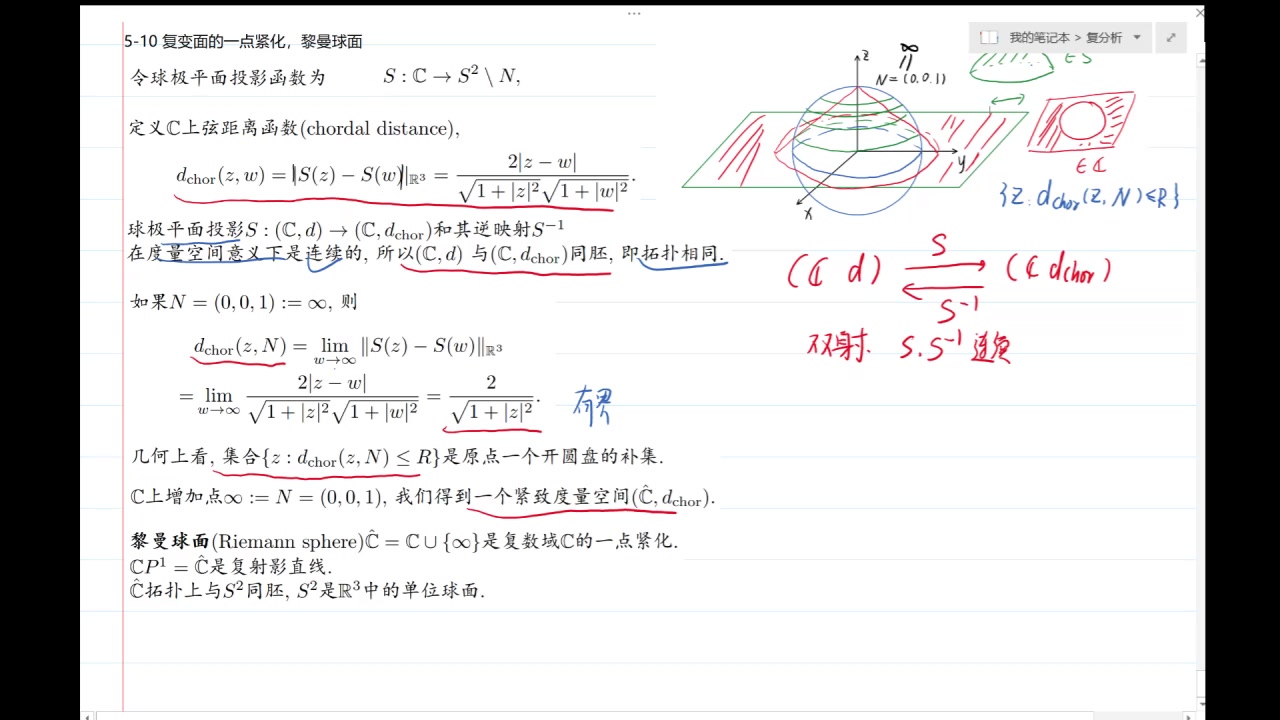 5-10 复变面的一点紧化，黎曼球面
我的笔记本 > 复分析
令球极平面投影函数为 S : ℂ → S² \ N,
定义ℂ上弦距离函数(chordal distance),
d_chor(z, w) = ‖S(z) − S(w)‖_ℝ³ = 2|z − w| / (√(1 + |z|²) √(1 + |w|²)).
球极平面投影S : (ℂ, d) → (ℂ, d_chor)和其逆映射S⁻¹
在度量空间意义下是连续的, 所以(ℂ, d) 与(ℂ, d_chor)同胚, 即拓扑相同.
如果N = (0, 0, 1) := ∞, 则
d_chor(z, N) = lim_{w→∞} ‖S(z) − S(w)‖_ℝ³
= lim_{w→∞} 2|z − w| / (√(1 + |z|²) √(1 + |w|²)) = 2 / √(1 + |z|²).
有界
几何上看, 集合{z : d_chor(z, N) ≤ R}是原点一个开圆盘的补集.
ℂ上增加点∞ := N = (0, 0, 1), 我们得到一个紧致度量空间(ℂ̂, d_chor).
黎曼球面(Riemann sphere)ℂ̂ = ℂ ∪ {∞}是复数域ℂ的一点紧化.
ℂP¹ = ℂ̂是复射影直线.
ℂ̂拓扑上与S²同胚, S²是ℝ³中的单位球面.
∞
N = (0, 0, 1)
z
y
x
∈ S
∈ ℂ
{z : d_chor(z, N) ≤ R}
(ℂ d) S (ℂ d_chor)
S⁻¹
双射. S, S⁻¹ 连续